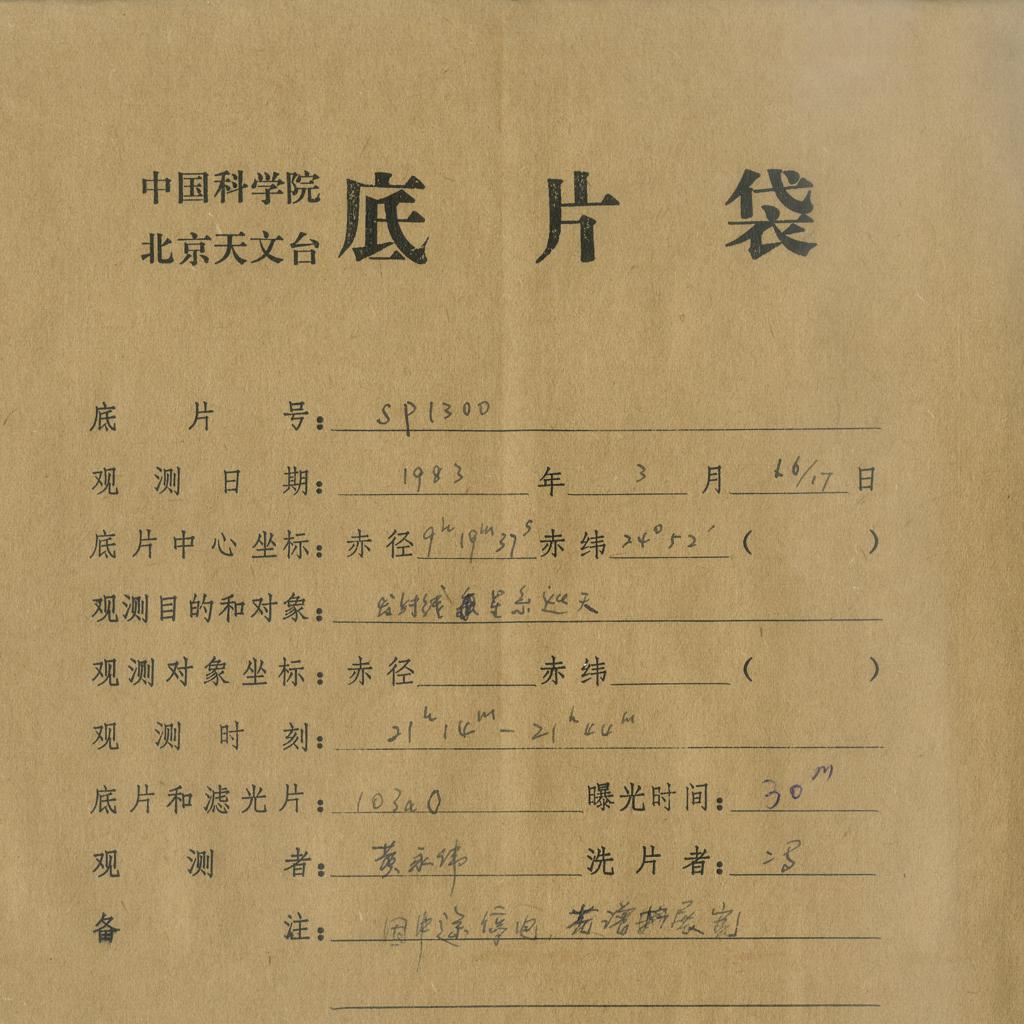 中国科学院
北京天文台 底片袋
底片号：SP1300
观测日期：1983年3月16/17日
底片中心坐标：赤径9ʰ19ᵐ37ˢ赤纬24°52′（ ）
观测目的和对象：发射线星系巡天
观测对象坐标：赤径 赤纬 （ ）
观测时刻：21ʰ14ᵐ－21ʰ44ᵐ
底片和滤光片：103aO 曝光时间：30ᵐ
观测者：黄永伟 洗片者：冯
备注：因中途停电，展宽